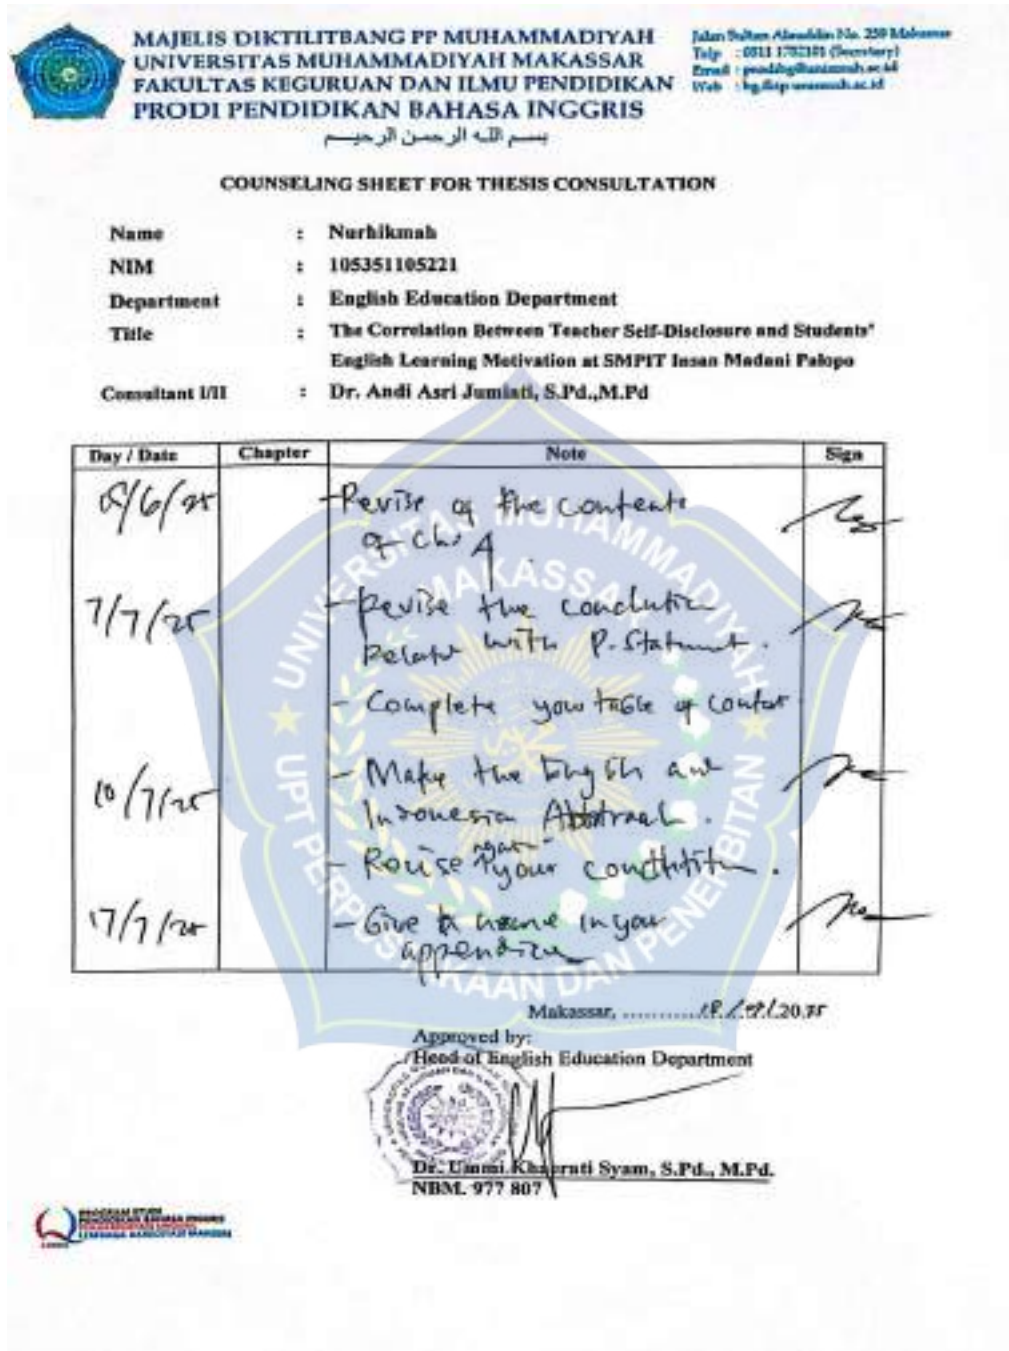 MAJELIS DIKTILITBANG PP MUHAMMADIYAH
UNIVERSITAS MUHAMMADIYAH MAKASSAR
FAKULTAS KEGURUAN DAN ILMU PENDIDIKAN
PRODI PENDIDIKAN BAHASA INGGRIS
بسم الله الرحمن الرحيم
Jalan Sultan Alauddin No. 259 Makassar
Telp : (Secretary)
Email :
Web :
COUNSELING SHEET FOR THESIS CONSULTATION
Name : Nurhikmah
NIM : 105351105221
Department : English Education Department
Title : The Correlation Between Teacher Self-Disclosure and Students'
English Learning Motivation at SMPIT Insan Madani Palopo
Consultant I/II : Dr. Andi Asri Jumiati, S.Pd.,M.Pd
Day / Date Chapter Note Sign
/6/25 - Revise of the contents
of Ch
7/7/25 - Revise the
with P. Statment.
- Complete your table of
10/7/25 - Make the English and
Indonesia
- your
17/7/25 - Give name in your
UNIVERSITAS MUHAMMADIYAH
MAKASSAR
UPT PERPUSTAKAAN DAN PENERBITAN
Makassar, 18/ /20
Approved by:
Head of English Education Department
Dr. Ummi Khaerati Syam, S.Pd., M.Pd.
NBM. 977 807
PROGRAM STUDI
PENDIDIKAN BAHASA INGGRIS